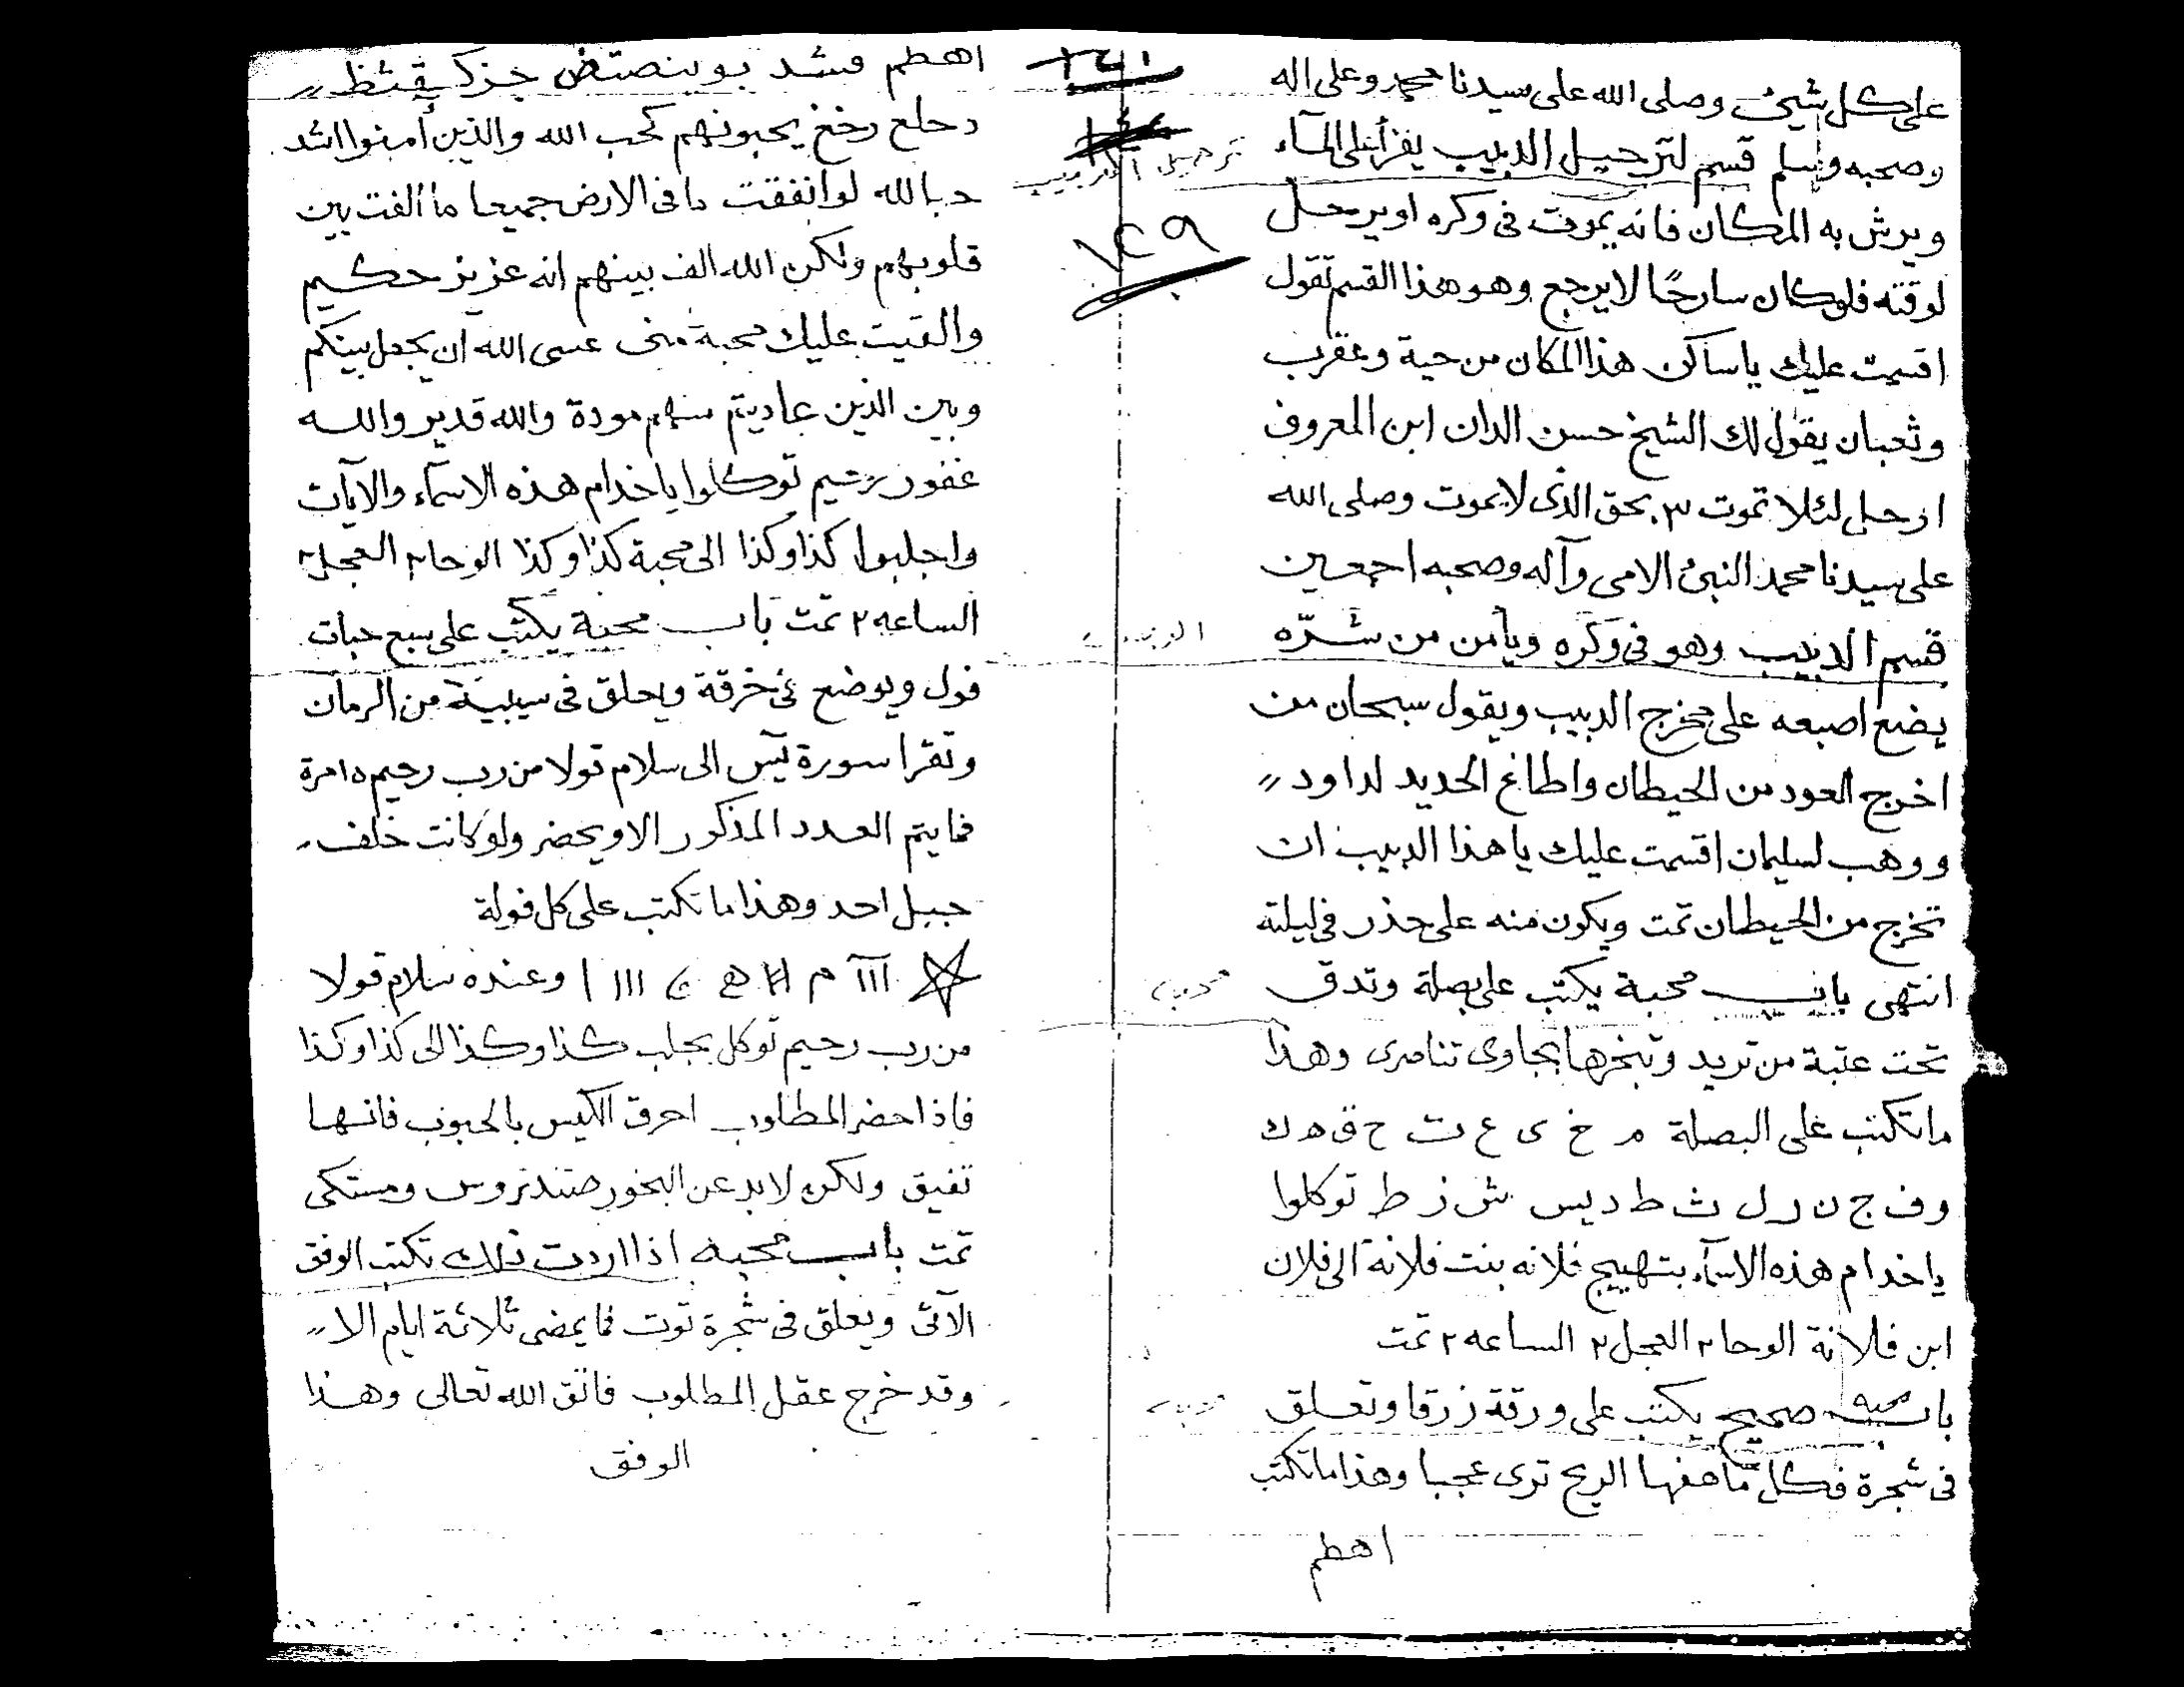 على كل شيئ وصلى الله على سيدنا محمد وعلى اله
وصحبه وسلم قسم لترحيل الدبيب يقرأ على المآء
ويرش به المكان فانه يموت فى وكره او يرحل
لوقته فلو كان سارحًا لا يرجع وهو هذا القسم تقول
اقسمت عليك يا ساكن هذا المكان من حية وعقرب
وثعبان يقول لك الشيخ حسن الدان ابن المعروف
ارحل لئلا تموت ٣ بحق الذى لا يموت وصلى الله
على سيدنا محمد النبئ الامى وآله وصحبه اجمعين
قسم الدبيب وهو فى وكره ويأمن من شرّه
يضع اصبعه على مخرج الدبيب ويقول سبحان من
اخرج العود من الحيطان واطاغ الحديد لداود
ووهب لسليمان اقسمت عليك يا هذا الدبيب ان
تخرج من الحيطان تمت ويكون منه على حذر فى ليلته
انتهى باب محبة يكتب على بصلة وتدق
تحت عتبة من تريد وتبخرها بجاوى تناصرى وهذا
ما تكتب على البصلة م خ ى ع ت ح ق ه ك
و ف ج ن ر ل ث ط د يس ش ز ط توكلوا
يا خدام هذه الاسمآء بتهييج فلانه بنت فلانة الى فلان
ابن فلانة الوحا ٢ العجل ٢ الساعه ٢ تمت
باب محبه صحيح يكتب على ورقة زرقا وتعلق
فى شجرة فكل ما هفها الريح ترى عجبا وهذا ما تكتب
اهطم
ترحيل الدبيب
١٤٩
اهطم فشد بوينصتض جزكسقثظ
دحلع رخغ يحبونهم كحب الله والذين أمنوا اشد
حبا لله لو انفقت ما فى الارض جميعا ما الفت بين
قلوبهم ولكن الله الف بينهم انه عزيز حكيم
والقيت عليك محبة منى عسى الله ان يجعل بينكم
وبين الذين عاديتم منهم مودة والله قدير والله
غفور رحيم توكلوا يا خدام هذه الاسمآء والايات
واجلبوا كذا وكذا الى محبة كذا وكذا الوحا ٢ العجل ٢
الساعه ٢ تمت باب محبة يكتب على سبع حبات
فول ويوضع فى خرقة ويعلق فى سيبية من الرمان
وتقرا سورة يٓس الى سلام قولا من رب رحيم ١٥ مرة
فما يتم العدد المذكور الا ويحضر ولو كانت خلف
جبل احد وهذا ما تكتب على كل فولة
ااا م # ااا ه و ا وعنده سلام قولا
من رب رحيم توكل بجلب كذا وكذا الى كذا وكذا
فاذا حضر المطلوب احرق الكيس بالحبوب فانها
تفيق ولكن لابد عن البخور صندروس ومستكى
تمت باب محبه اذا اردت ذلك تكتب الوفق
الآتى ويعلق فى شجرة توت فما يمضى ثلاثة ايام الا
وقد خرج عقل المطلوب فاتق الله تعالى وهذا
الوفق